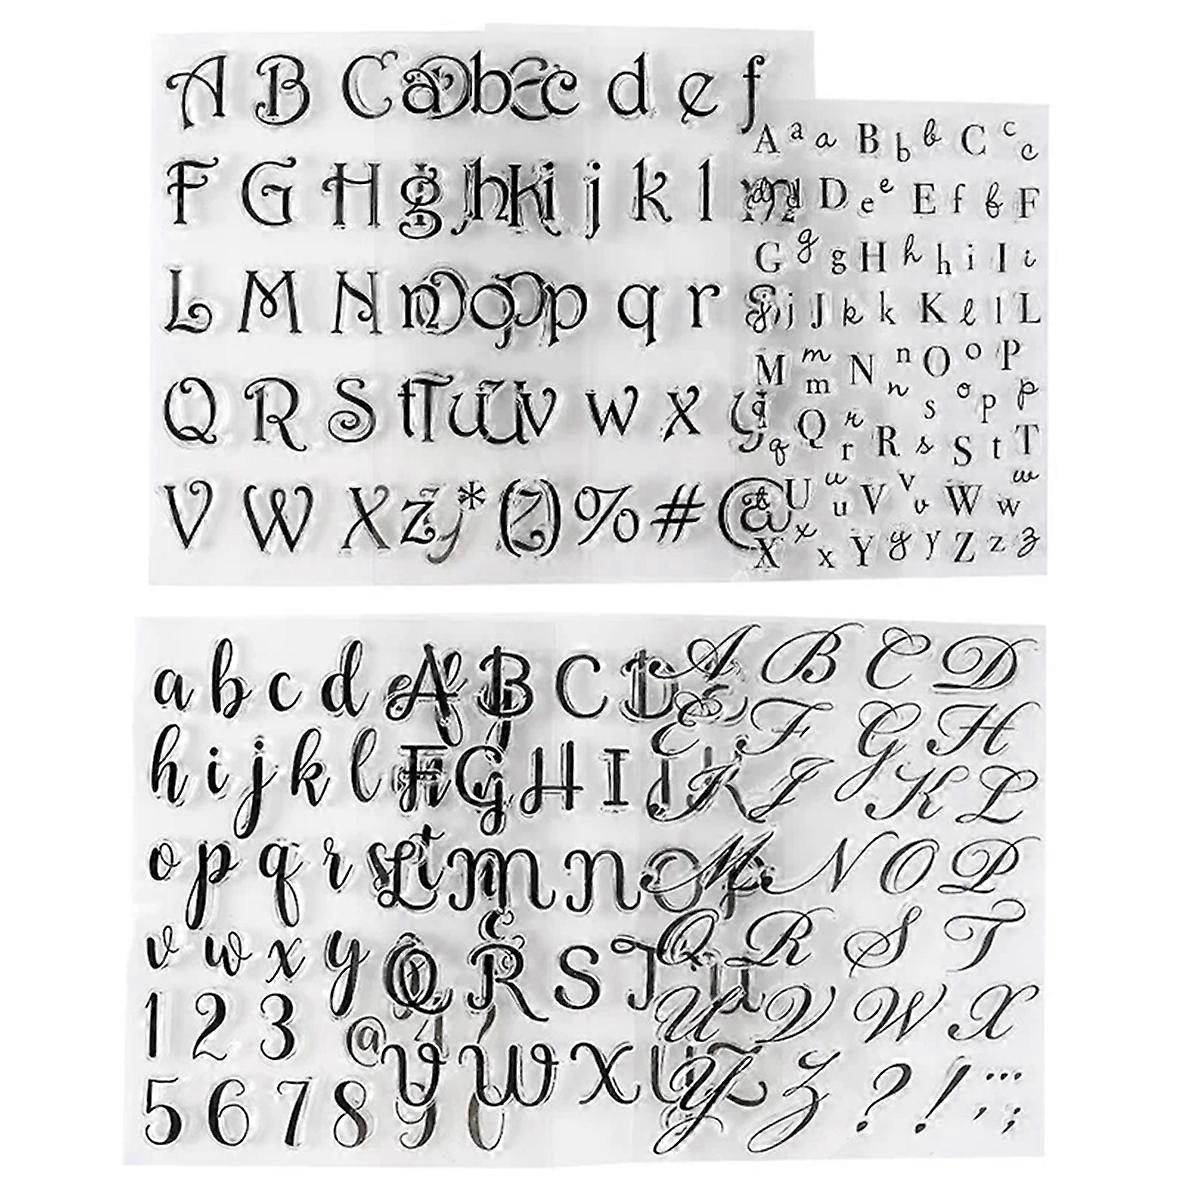 A B C a D b E c d e f
F G H g J h K i j k l m
L M N n O o P p q r s
Q R S t T u U v w x y
V W X z * ( Z ) % # @
A a a B b b C c c
d d D e e E f f F
G g g H h h i I i
j j J k k K l l L
M m m N n n O o o P p p
q Q r r R s s S t T
t U u u V v v W w w
X x x Y y y Z z z
a b c d e f A B C D E
h i j k l F G H I J K
o p q r s t L M N O P
v w x y Q R S T U
1 2 3 @ 4 V W X Y Z
5 6 7 8 9 0
A B C D
E F G H
I J K L
M N O P
Q R S T
U V W X
Y Z ? ! ... , ;